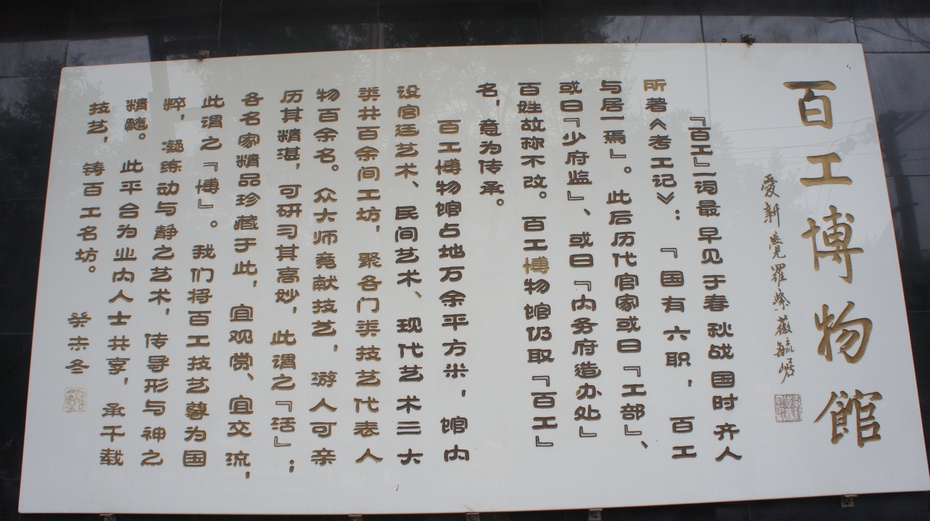 百工博物館
愛新覺羅
『百工』一词最早见于春秋战国时齐人
所著《考工记》：『国有六职，百工
与居一焉』。此后历代官家或曰『工部』、
或曰『少府监』、或曰『内务府造办处』
百姓故称不改。百工博物馆仍取『百工』
名，意为传承。
百工博物馆占地万余平方米，馆内
设宫廷艺术、民间艺术、现代艺术三大
类共百余间工坊，聚各门类技艺代表人
物百余名。众大师竞献技艺，游人可亲
历其精湛，可研习其高妙，此谓之『活』；
各名家精品珍藏于此，宜观赏、宜交流，
此谓之『博』。我们将百工技艺尊为国
粹，凝练动与静之艺术，传导形与神之
精髓。此平台为业内人士共享，承千载
技艺，铸百工名坊。
癸未冬